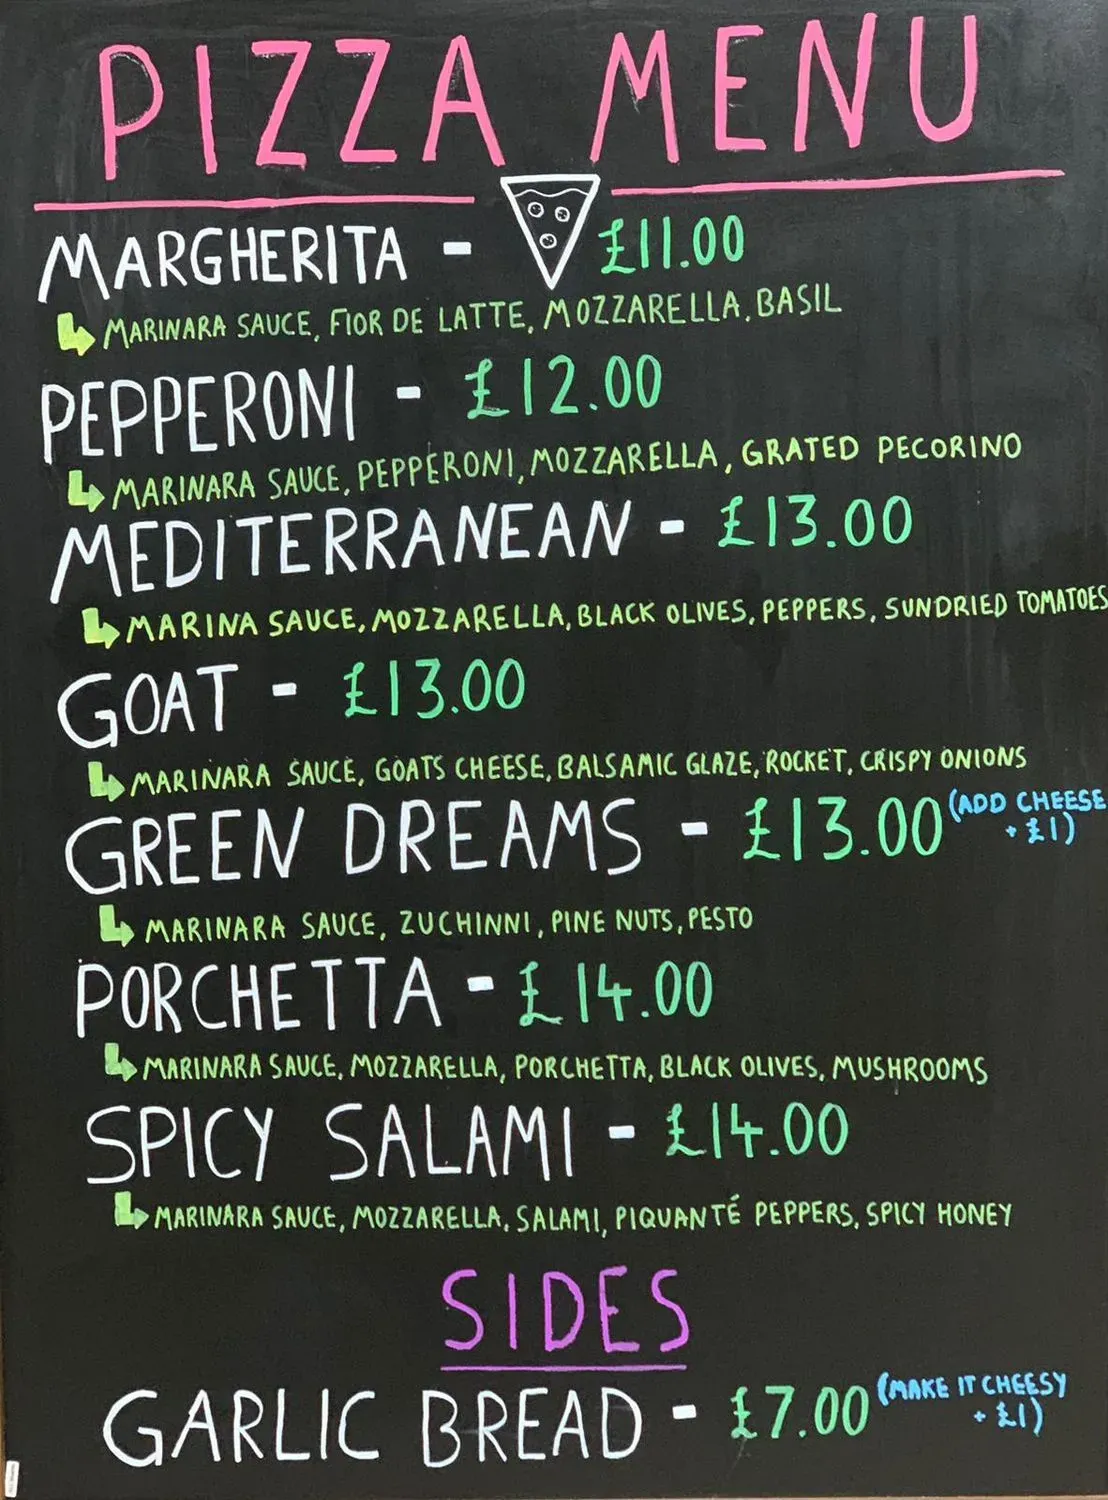 PIZZA MENU
MARGHERITA - £11.00
MARINARA SAUCE, FIOR DE LATTE, MOZZARELLA, BASIL
PEPPERONI - £12.00
MARINARA SAUCE, PEPPERONI, MOZZARELLA, GRATED PECORINO
MEDITERRANEAN - £13.00
MARINA SAUCE, MOZZARELLA, BLACK OLIVES, PEPPERS, SUNDRIED TOMATOES
GOAT - £13.00
MARINARA SAUCE, GOATS CHEESE, BALSAMIC GLAZE, ROCKET, CRISPY ONIONS
GREEN DREAMS - £13.00 (ADD CHEESE
+ £1)
MARINARA SAUCE, ZUCHINNI, PINE NUTS, PESTO
PORCHETTA - £14.00
MARINARA SAUCE, MOZZARELLA, PORCHETTA, BLACK OLIVES, MUSHROOMS
SPICY SALAMI - £14.00
MARINARA SAUCE, MOZZARELLA, SALAMI, PIQUANTÉ PEPPERS, SPICY HONEY
SIDES
GARLIC BREAD - £7.00 (MAKE IT CHEESY
+ £1)